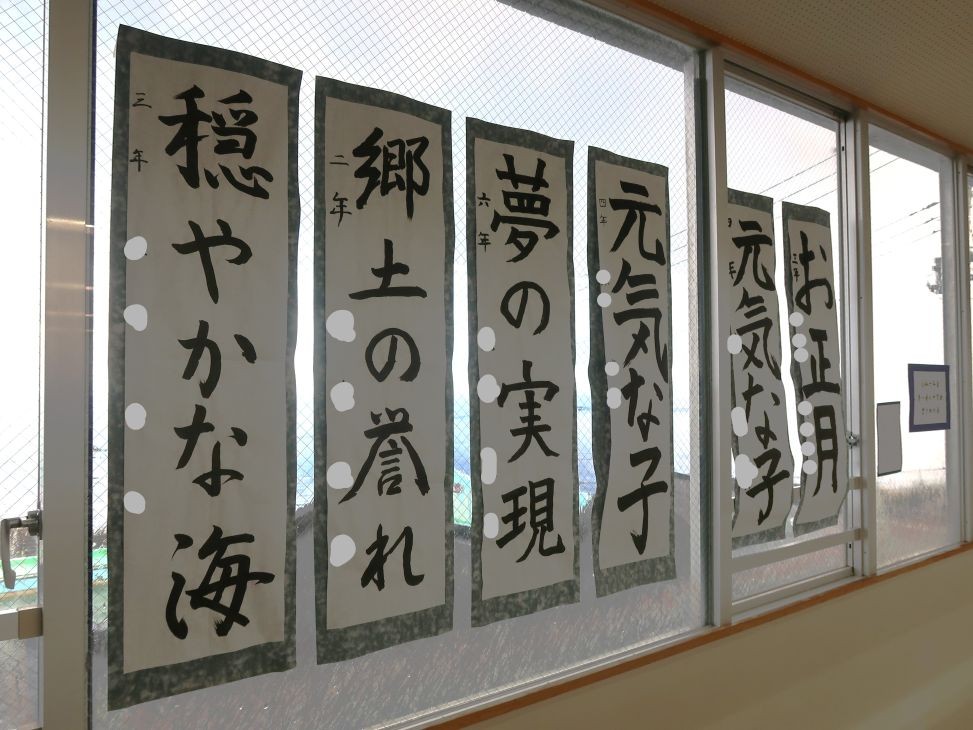 穏やかな海
三年
郷土の誉れ
二年
夢の実現
六年
元気な子
四年
元気な子
お正月
三年